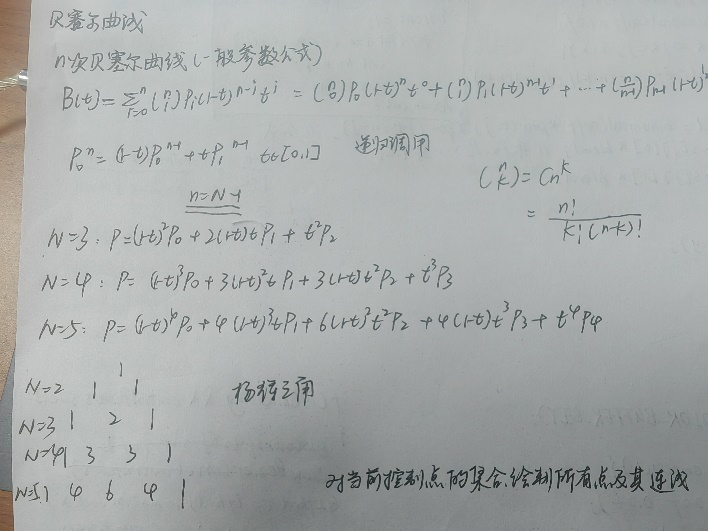 贝塞尔曲线
n次贝塞尔曲线(一般参数公式)
B(t)=∑_{i=0}^{n} (n i) P_i(1-t)^{n-i}t^i = (n 0)P_0(1-t)^n t^0+(n 1)P_1(1-t)^{n-1}t^1+…+(n n-1)P_{n-1}(1-t)^1
P_0^n=(1-t)P_0^{n-1}+tP_1^{n-1} t∈[0,1] 递归调用
(n k)=C_n^k
= n!/k!(n-k)!
n=N-1
N=3: P=(1-t)^2P_0+2(1-t)tP_1+t^2P_2
N=4: P=(1-t)^3P_0+3(1-t)^2tP_1+3(1-t)t^2P_2+t^3P_3
N=5: P=(1-t)^4P_0+4(1-t)^3tP_1+6(1-t)^2t^2P_2+4(1-t)t^3P_3+t^4P_4
1
N=2 1 1 杨辉三角
N=3 1 2 1
N=4 1 3 3 1
N=5 1 4 6 4 1
对当前控制点的集合,绘制所有点及其连线